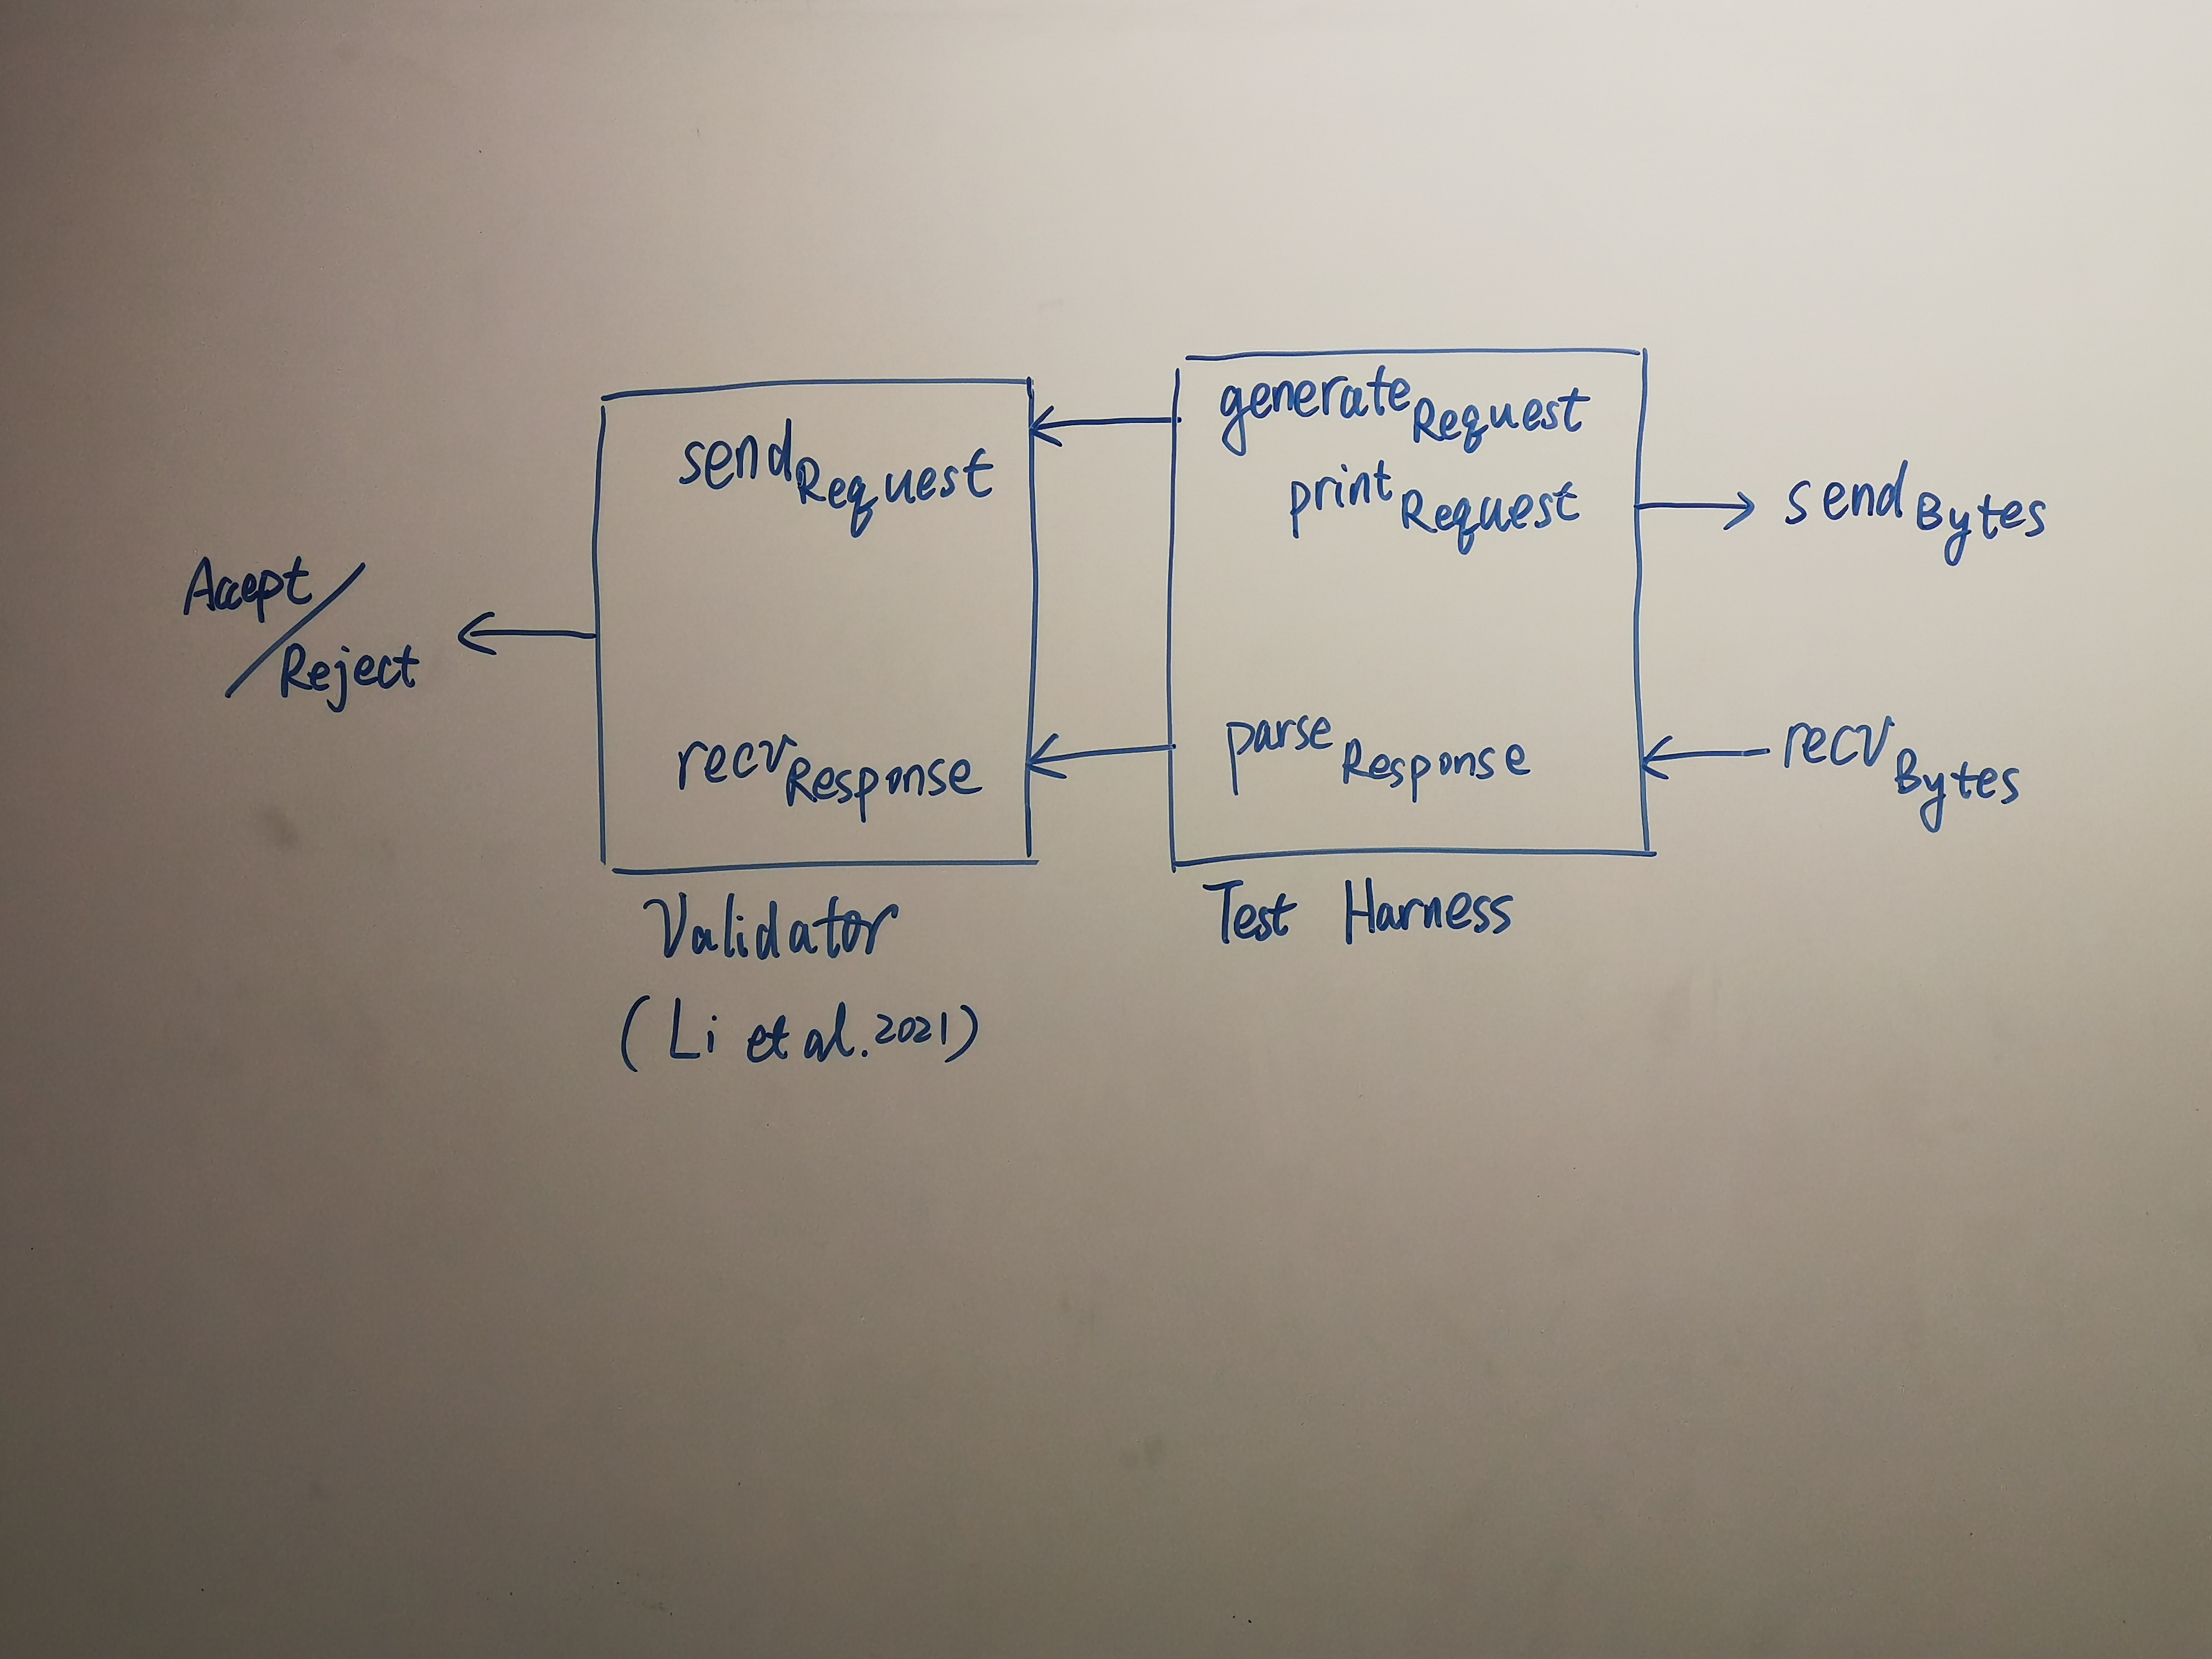 Accept/
Reject
send Request
recv Response
Validator
(Li et al. 2021)
generate Request
print Request
parse Response
Test Harness
send Bytes
recv Bytes